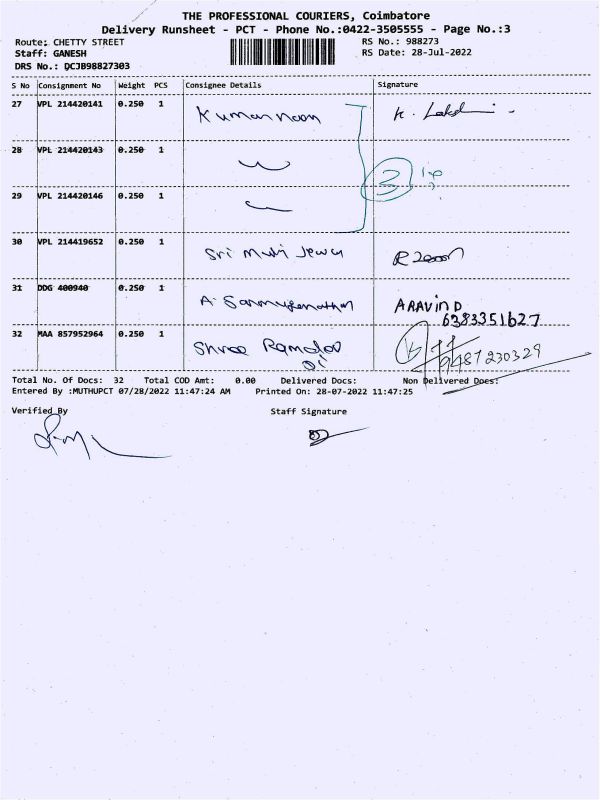 THE PROFESSIONAL COURIERS, Coimbatore
Delivery Runsheet - PCT - Phone No.:0422-3505555 - Page No.:3
Route: CHETTY STREET RS No.: 988273
Staff: GANESH RS Date: 28-Jul-2022
DRS No.: DCJB98827303
S No Consignment No Weight PCS Consignee Details Signature
27 VPL 214420141 0.250 1
28 VPL 214420143 0.250 1
3
29 VPL 214420146 0.250 1
30 VPL 214419652 0.250 1 Sri
31 DDG 400940 0.250 1 A. ARAVIND
6383351627
32 MAA 857952964 0.250 1 Shree
9487230329
Total No. Of Docs: 32 Total COD Amt: 0.00 Delivered Docs: Non Delivered Docs:
Entered By :MUTHUPCT 07/28/2022 11:47:24 AM Printed On: 28-07-2022 11:47:25
Verified By Staff Signature